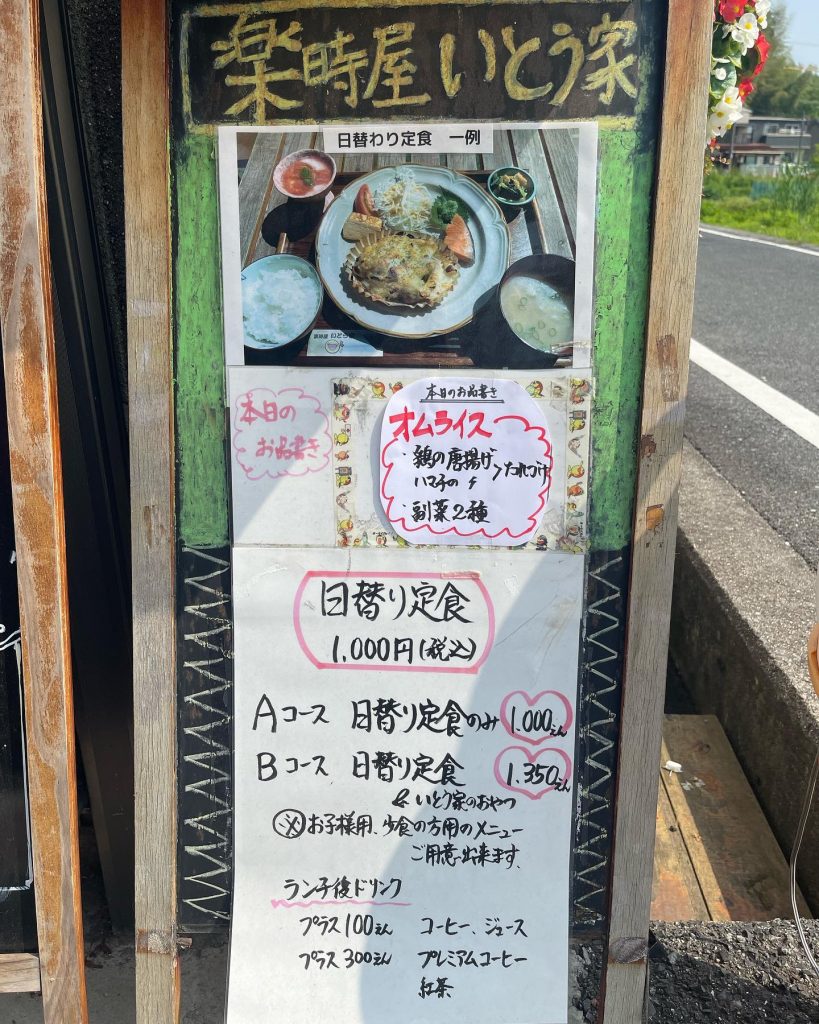 楽時屋 いとう家
日替わり定食 一例
楽時屋 いとう家
本日の
お品書き
本日のお品書き
オムライス
・鶏の唐揚げ
ハマ子の 〃 > たれづけ
・副菜2種
日替り定食
1,000円(税込)
Aコース 日替り定食のみ 1.000えん
Bコース 日替り定食 1.350えん
& いとう家のおやつ
※お子様用、少食の方用のメニュー
ご用意出来ます。
ランチ後ドリンク
プラス100えん コーヒー、ジュース
プラス300えん プレミアムコーヒー
紅茶